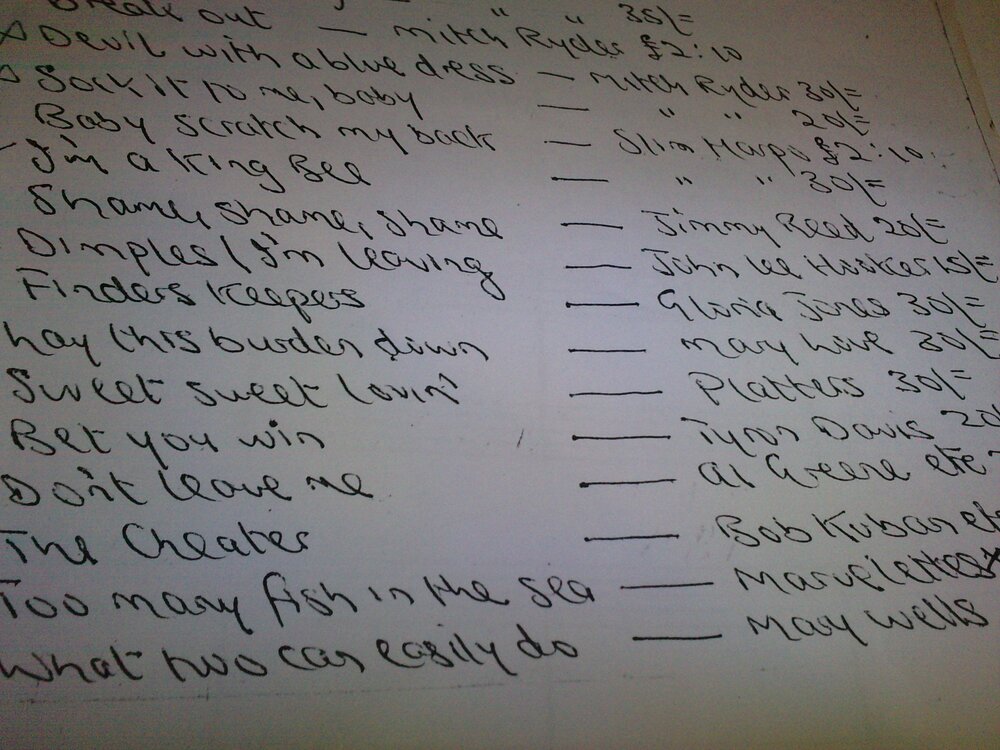 Break out — " " 35/=
Devil with a blue dress — Mitch Ryder £2:10
Sock it to me, baby — Mitch Ryder 30/=
Baby scratch my back — " " 20/=
I'm a King Bee — Slim Harpo £2:10
Shame, shame, shame — " " 30/=
Dimples / I'm leaving — Jimmy Reed 20/=
Finders Keepers — John Lee Hooker 15/=
Lay this burden down — Gloria Jones 30/=
Sweet sweet lovin' — Mary Love 30/=
Bet you win — Platters 30/=
Don't leave me — Tyron Davis 20
The Cheater — Al Greene etc
Too many fish in the sea — Bob Kuban etc
What two can easily do — Marvelettes
— Mary Wells